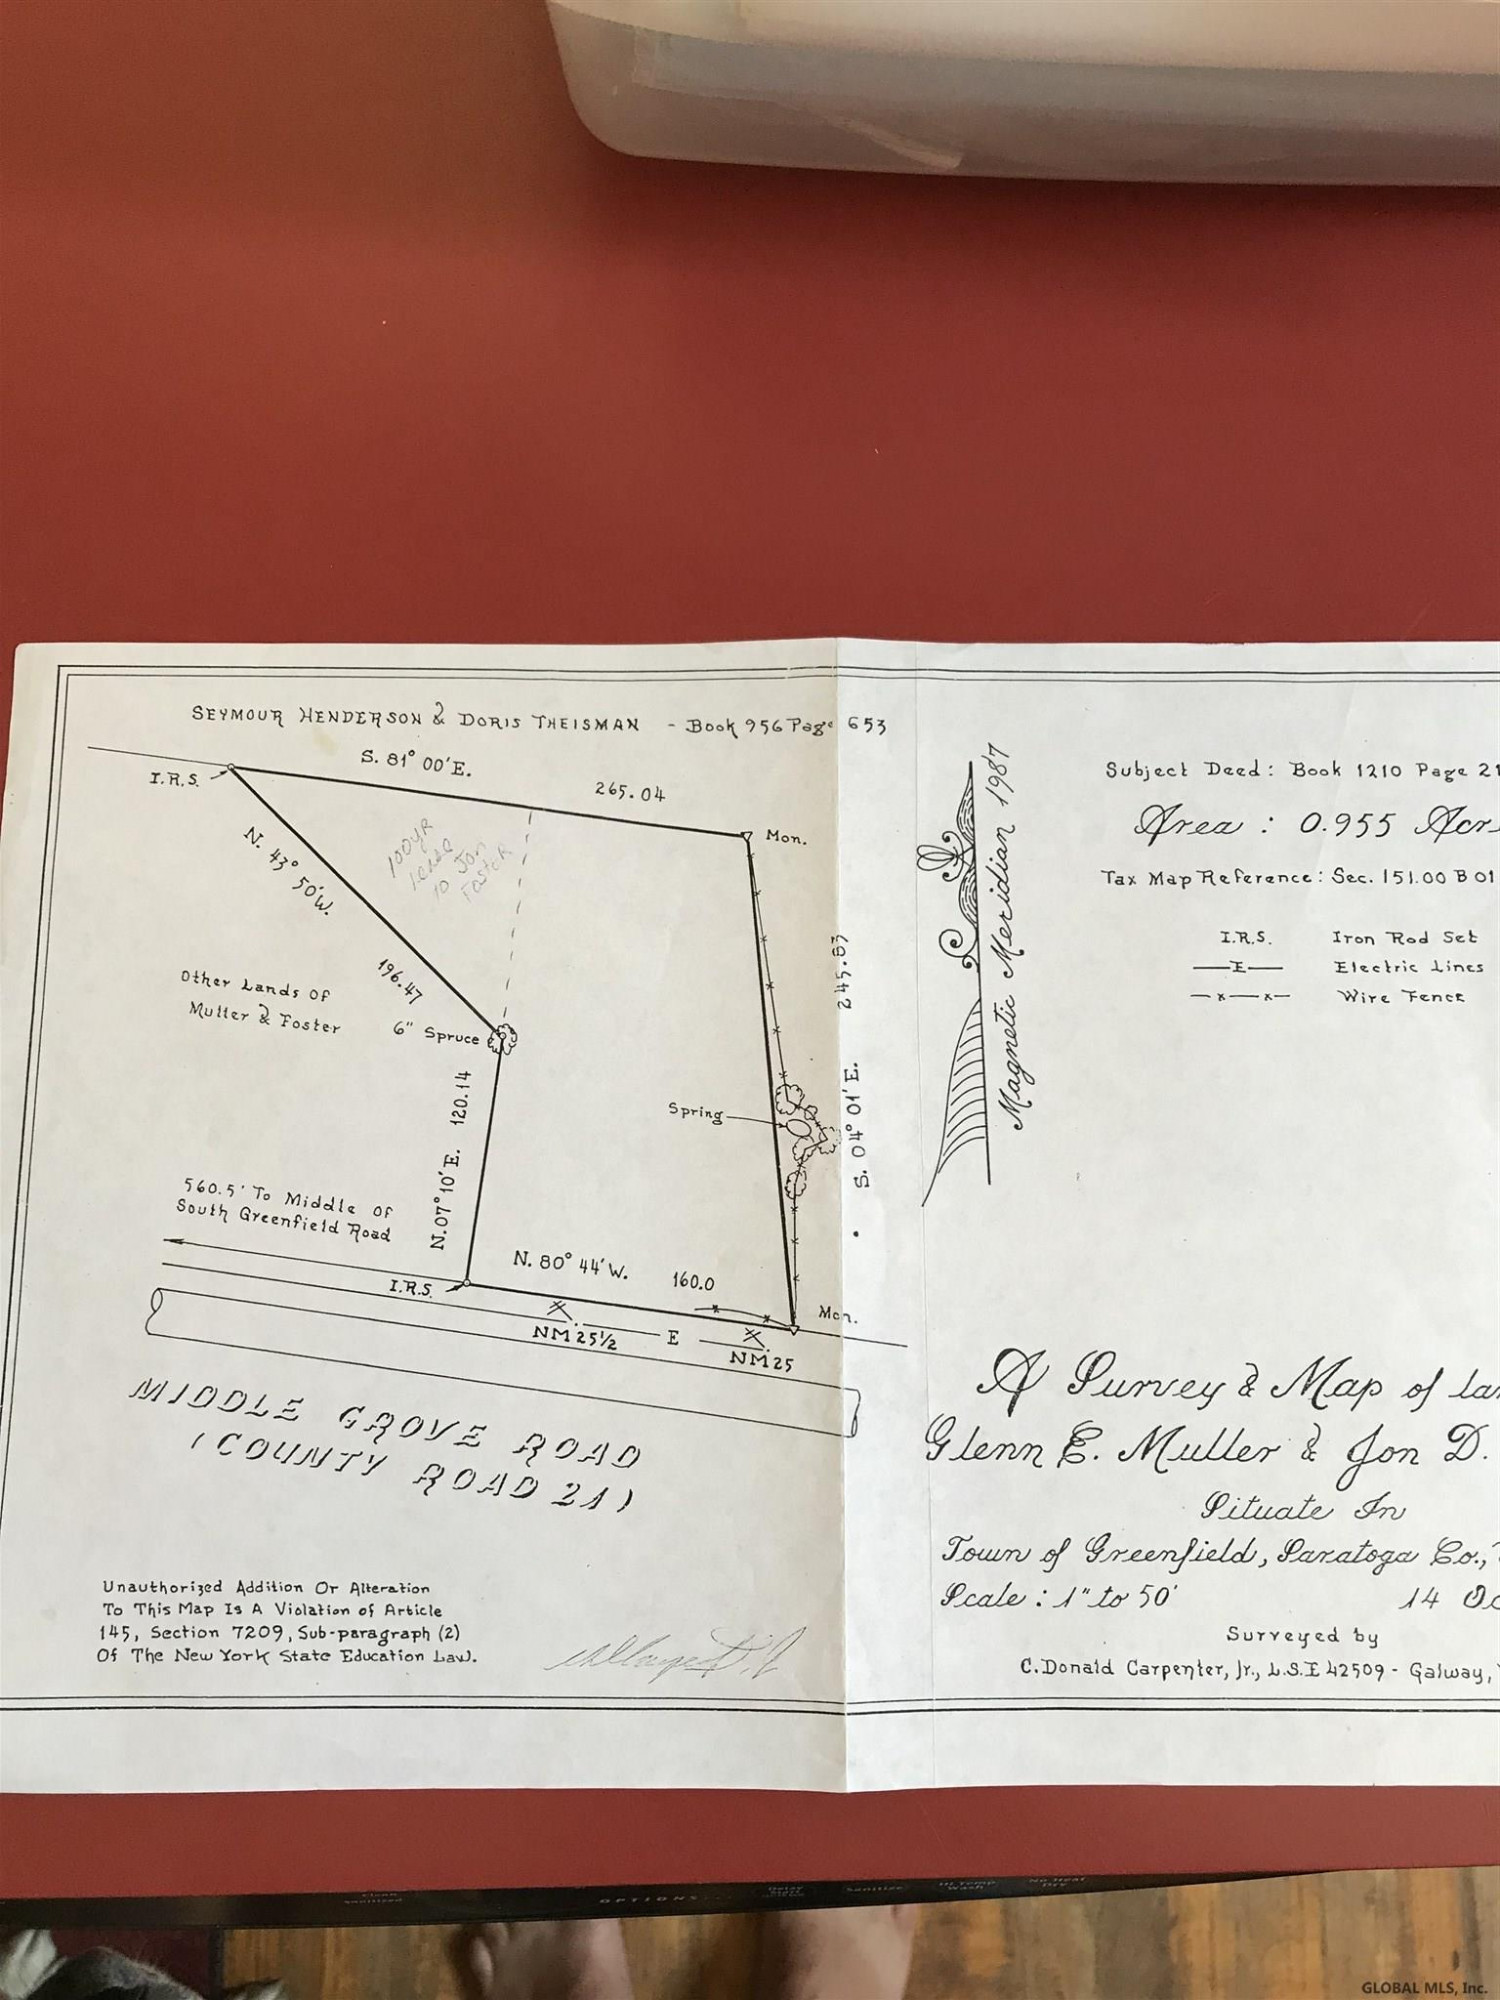 SEYMOUR HENDERSON & DORIS THEISMAN - Book 956 Page 653
S. 81° 00' E.
265.04
I.R.S.
Mon.
N. 43° 50' W.
196.47
100 YR
Lease
TO Jon
Foster
Other Lands Of
Muller & Foster
6" Spruce
N. 07° 10' E. 120.14
Spring
S. 04° 01' E. 245.83
560.5' To Middle Of
South Greenfield Road
I.R.S.
N. 80° 44' W. 160.0
Mon.
NM 25½
E
NM 25
MIDDLE GROVE ROAD
(COUNTY ROAD 21)
Unauthorized Addition Or Alteration
To This Map Is A Violation of Article
145, Section 7209, Sub-paragraph (2)
Of The New York State Education Law.
Magnetic Meridian 1987
Subject Deed: Book 1210 Page 21
Area: 0.955 Acr
Tax Map Reference: Sec. 151.00 B 01
I.R.S. Iron Rod Set
E Electric Lines
x x Wire Fence
A Survey & Map of la
Glenn E. Muller & Jon D.
Situate In
Town of Greenfield, Saratoga Co.,
Scale: 1" to 50' 14 Oc
Surveyed by
C. Donald Carpenter, Jr., L.S. 42509 - Galway,
OPTIONS
GLOBAL MLS, Inc.